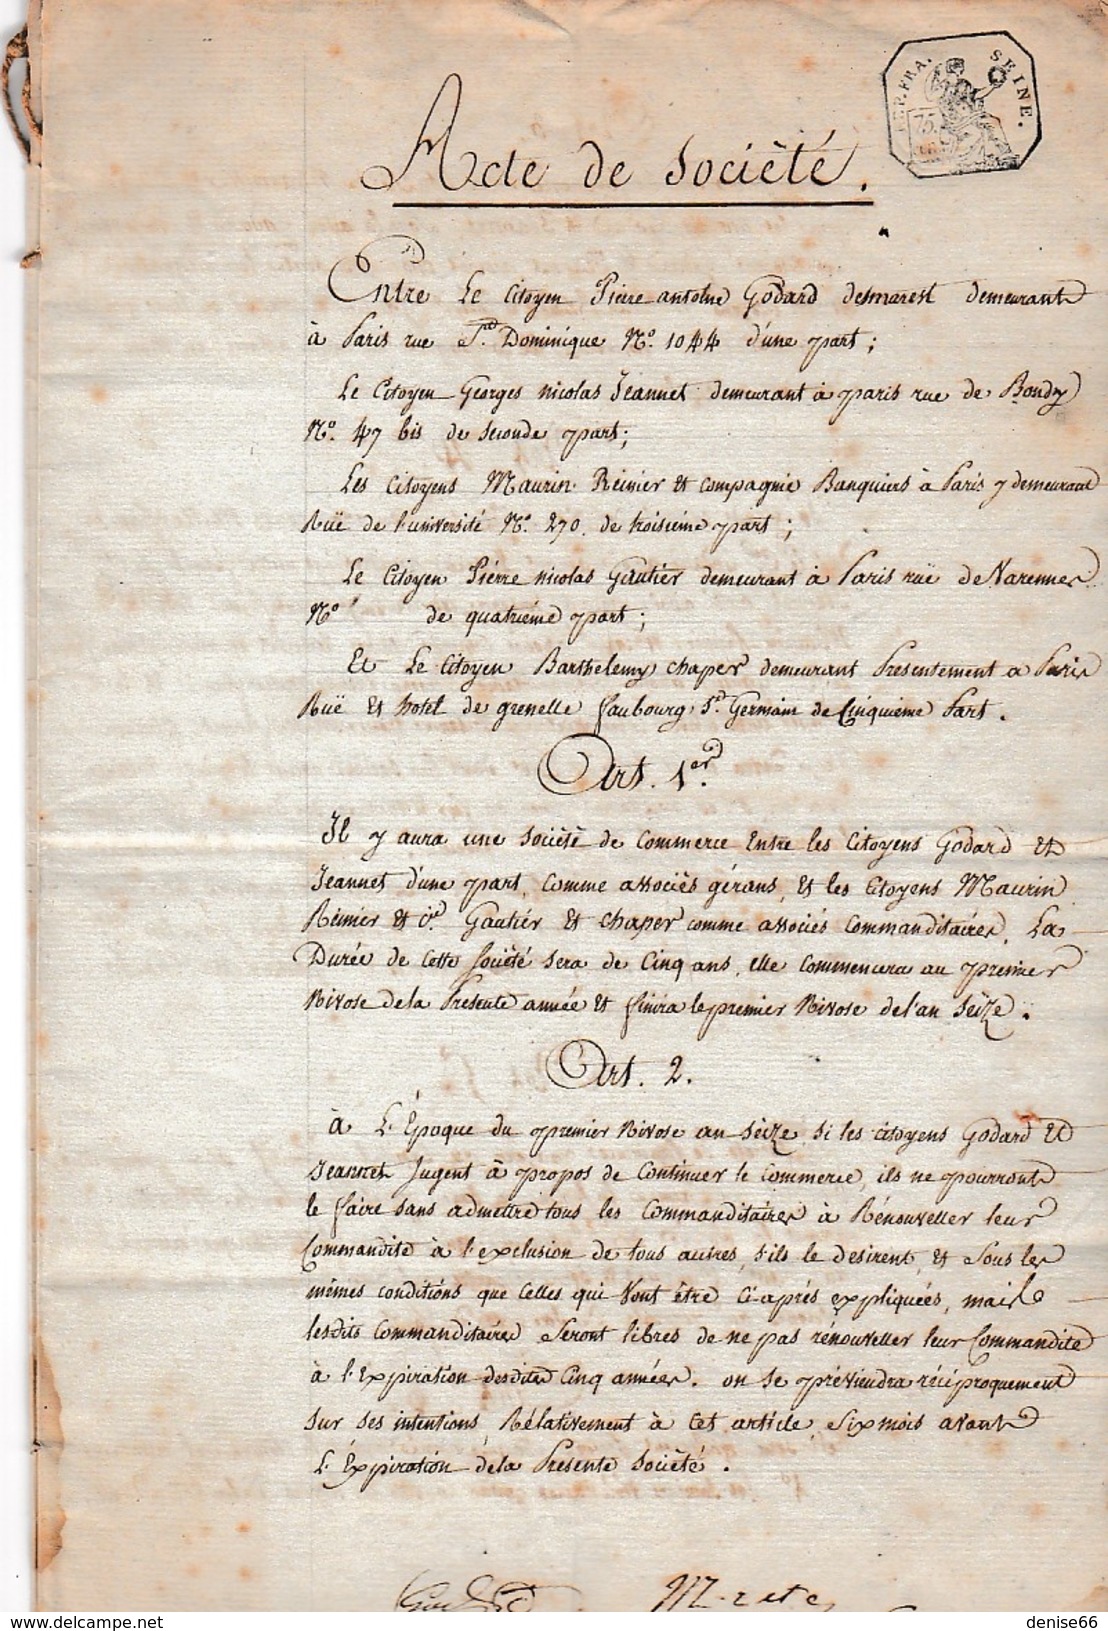 REP. FRA. SEINE.
75.
Acte de Socièté.
Entre Le Citoyen Pierre antoine Godard desmarest demeurant
à Paris rue St. Dominique No. 1044 d'une part;
Le Citoyen Georges nicolas Jeannet demeurant à paris rue de Bondy
No. 47 bis de seconde part;
Les Citoyens Maurin Réinier et compagnie Banquiers à Paris y demeurant
Ruë de l'université No. 270. de troisieme part;
Le Citoyen Piérre nicolas Gautier demeurant à Paris ruë de Varennes
No de quatriéme part;
Et Le Citoyen Barthelemy chaper demeurant Présentement a Paris
Ruë et hotel de grenelle faubourg St. Germain de Cinquieme Part.
Art. 1er.
Il y aura une Sociètè de commerce Entre les Citoyens Godard et
Jeannet d'une part, comme associès gérans, et les Citoyens Maurin
Réinier et Cie. Gautiér et chaper comme associés Commanditaires, La
Durée de cette Sociètè sera de Cinq ans, elle commencera au premier
Nivose de la Présente année et finira le premier Nivose de l'an Seize.
Art. 2.
à L'Époque du premier Nivose an Seize, si les citoyens Godard et
Jeannet Jugent à propos de Continuer le commerce, ils ne pourront
le faire sans admettre tous les Commanditaires à Rénouveller leur
Commandite à l'exclusion de tous autres, s'ils le desirent, et Sous les
mêmes conditions que Celles qui Vont être Ci-aprés expliquées, mais
lesdits Commanditaires Seront libres de ne pas rénouveller leur Commandite
à l'Expiration desdites Cinq années. on se préviendra réciproquement
sur ses intentions, Rélativement à Cet article, Six mois avant
L'Expiration de la Présente Société.
denise66